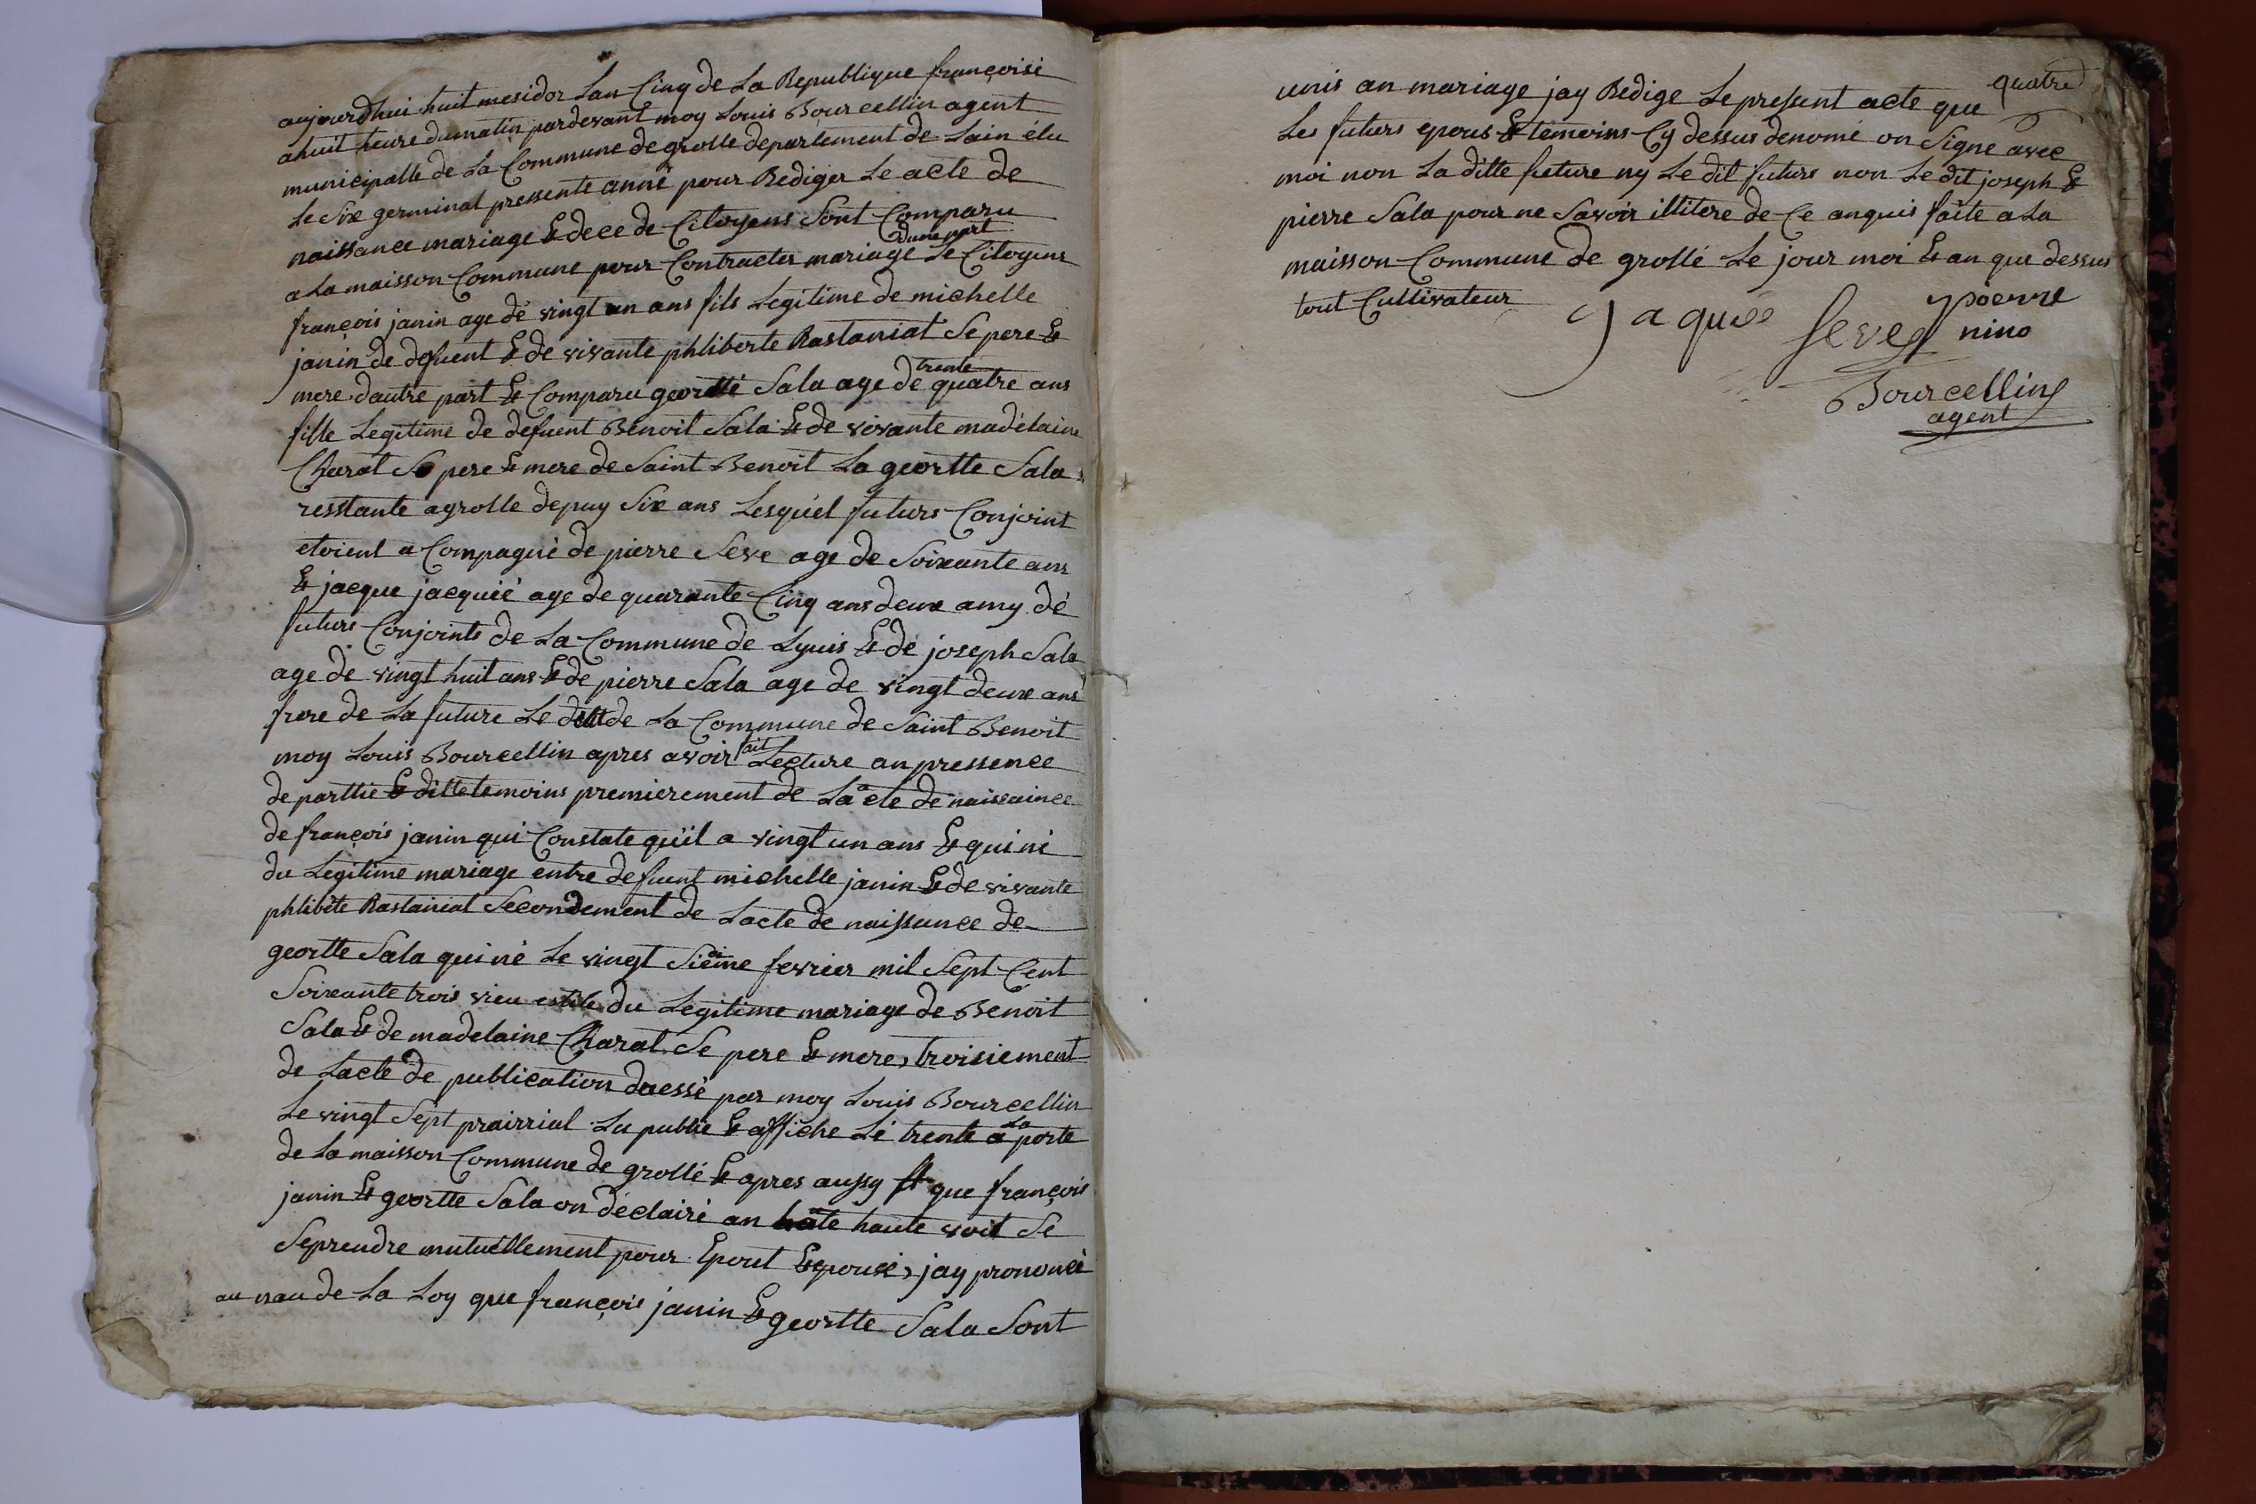 aujourdhui huit mesidor Lan Cinq de La Republique françoisi
ahuit heure dumatin pardevant moy Louis Bourcellin agent
municipalle de La Commune de grolle departement de Lain élu
Le Six germinal pressente anné pour Rediger Le acte de
naissance mariage & dece de Citoyens Sont Comparu
a La maisson Commune pour Contracter mariage dune part Le Citoyens
françois janin age de vingt un ans fils Legitime de michelle
janin de defuent & de vivante phliberte Rastaniat Se pere &
mere, dautre part & Comparu geortte Sala age de trente quatre ans
fille Legitime de defuent Benoit Sala & de vivante madélaine
Charat Se pere & mere de Saint Benoit La geortte Sala
resstante agrolle depuy Six ans Lesquél futurs Conjoint
etoient a Compagné de pierre Seve age de Soixante ans
& jacque jacquié age de quarante Cinq ans deux amy dé
futurs Conjoints de La Commune de Lyuis & de joseph Sala
age de vingt huit ans & de pierre Sala age de vingt deux ans
frere de La future Le ditt de La Commune de Saint Benoit
moy Louis Bourcellin apres avoir fait Lecture an pressence
de parttie & ditte temoins premierement de La acte de naissaince
de françois janin qui Constate quil a vingt un ans & qui ni
du Legitime mariage entre defuent michelle janin & de vivante
phlibete Rastaniat Secondement de Lacte de naissance de
geortte Sala qui né Le vingt Sieme fevrier mil Sept Cent
Soixante trois vieu estile du Legitime mariage de Benoit
Sala & de madelaine Charat Se pere & mere, troisiement
de Lacte de publication dressé par moy Louis Bourcellin
Le vingt Sept prairrial Lu publié & affiche Lé trente a La porte
de La maisson Commune de grollé & apres aussy que françois
janin & geortte Sala on déclairé an haute voit Se
Seprendre mutuellement pour Epout & epousé, jay prononcé
au nau de La Loy que françois janin & geortte Sala Sont
quatre
unis an mariage jay Redige Le present acte que
Les futurs epous & temoins Cy dessus denomé on Signe avec
moi non La ditte future ny Le dit futurs non Le dit joseph &
pierre Sala pour ne Savoir illitere de Ce anquis faite a La
maisson Commune de grollé Le jour moi & an que dessus
tout Cultivateur
Jaques Seve pierre
nino
Bourcellin
agent